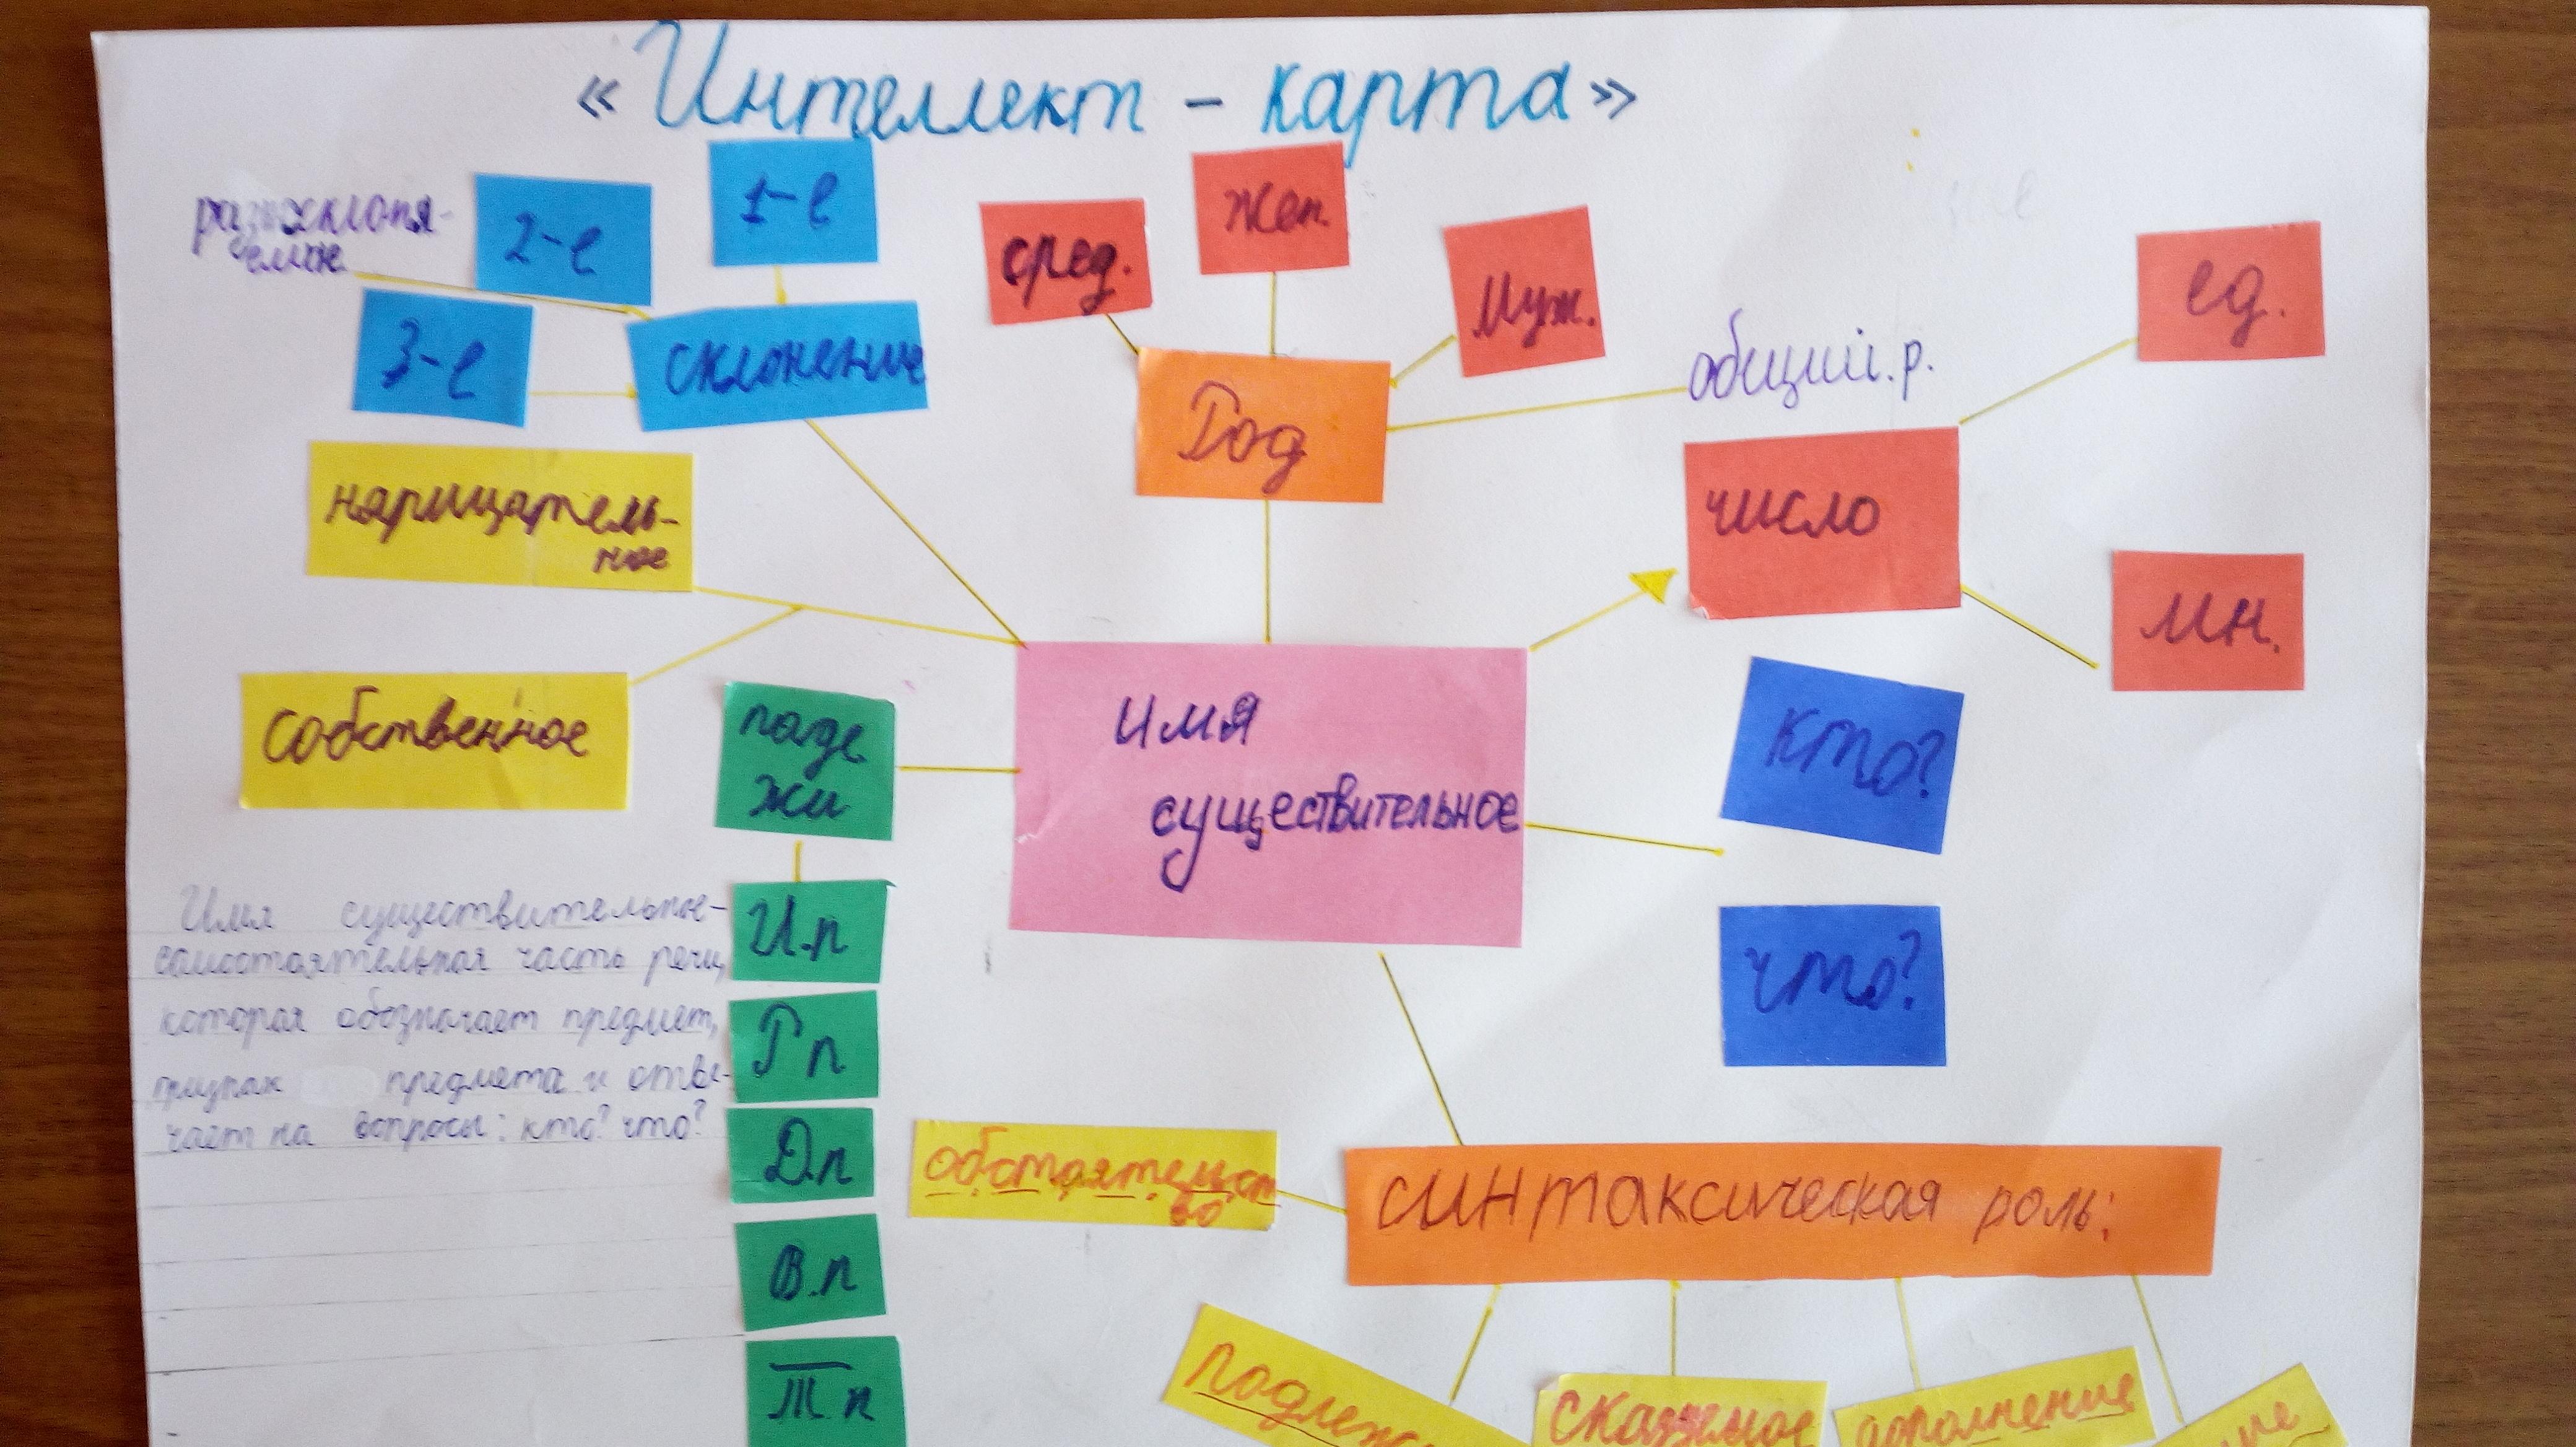 «Интеллект - карта»
1-е
2-е
3-е
разносклоня-
емые
склонение
сред.
жен.
муж.
Род
общий.р.
ед.
число
мн.
нарицатель-
ное
собственное
паде
жи
имя
существительное
кто?
что?
Имя существительное-
самостоятельная часть речи,
которая обозначает предмет,
признак предмета и отве-
чает на вопросы: кто? что?
И.п
Р п
Д.п
В.п
Т п
обстоятельст
во
синтаксическая роль:
сказуемое
дополнение